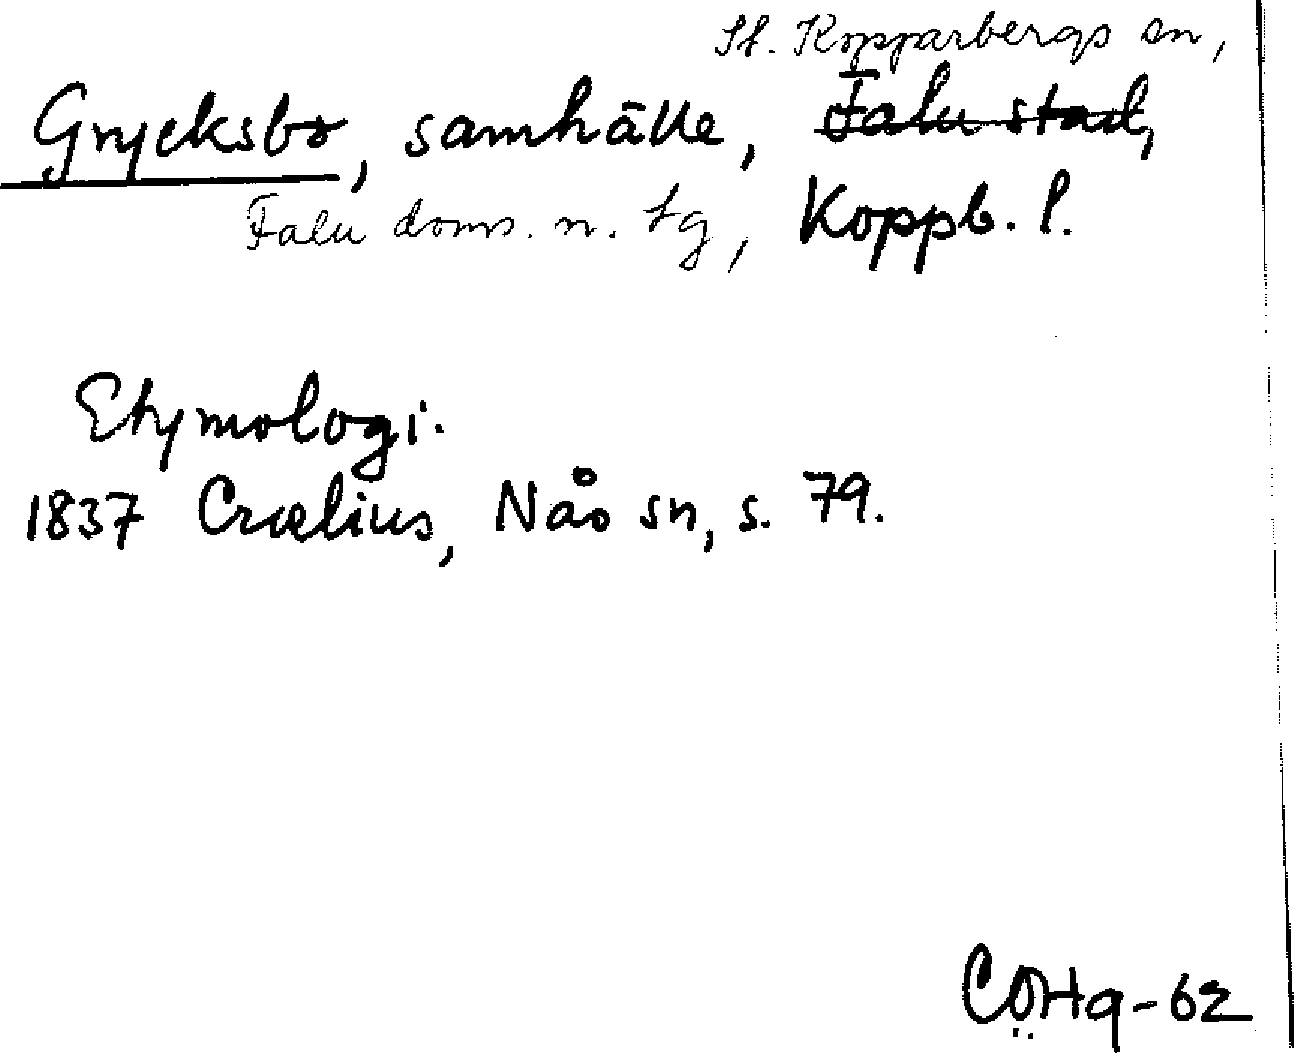 St. Kopparbergs sn,
Grycksbo, samhälle, Falu stad,
Falu doms. n. tg, Koppb. l.
Etymologi.
1837 Crælius, Nås sn, s. 79.